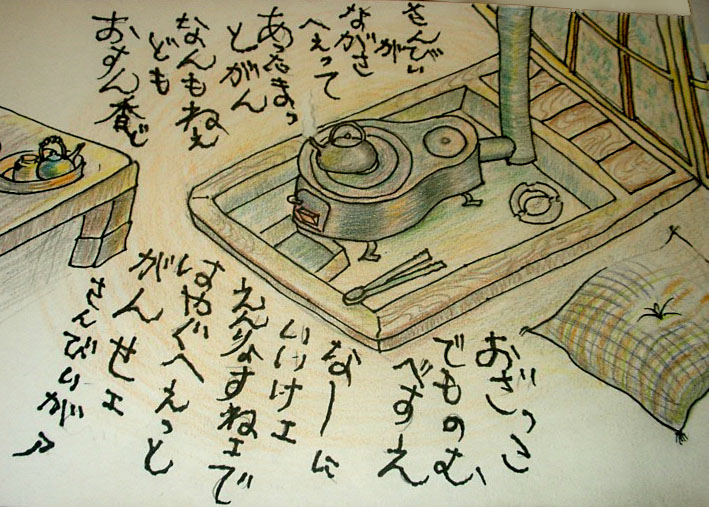 さんびぃ
が
ながさ
へぇって
あったまっ
とがん
なんもねぇ
ども
おすん香ど
おざっこ
でものむ
べすえ
なーに
いいけェ
えんりょすねェで
はやぐへぇっと
がんせェ
さんびぃがら